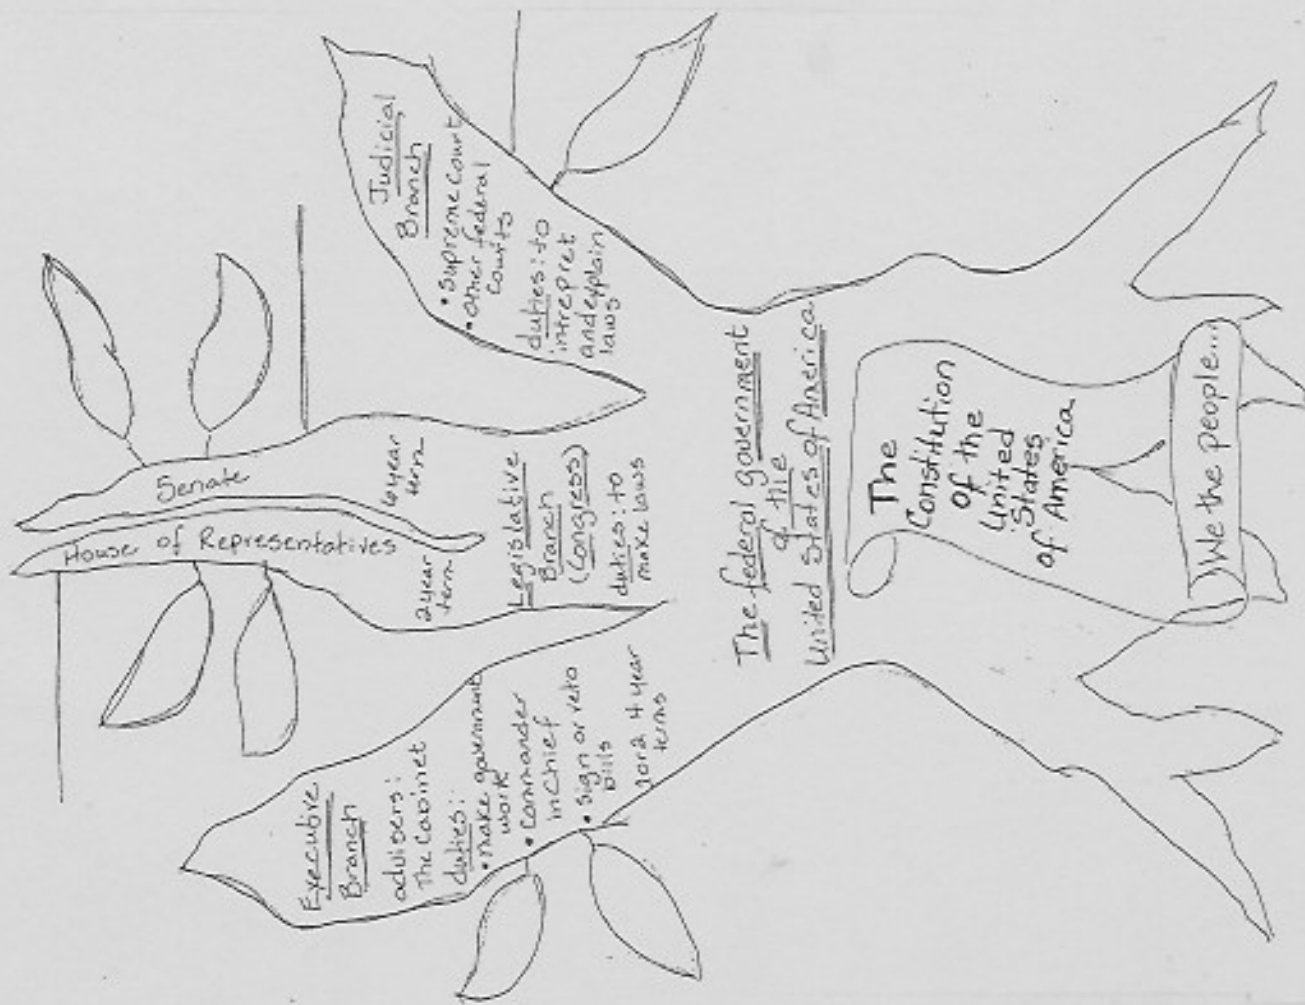 Executive
Branch
advisers:
The Cabinet
duties:
• make government
work
• Commander
in Chief
• sign or veto
bills
1 or 2 4 year
terms
House of Representatives
2 year
term
Senate
6 year
term
Legislative
Branch
(Congress)
duties: to
make laws
Judicial
Branch
• Supreme Court
• Other federal
courts
duties: to
intrepret
and explain
laws
The federal government
of the
United States of America
The
Constitution
of the
United
States
of America
We the people...